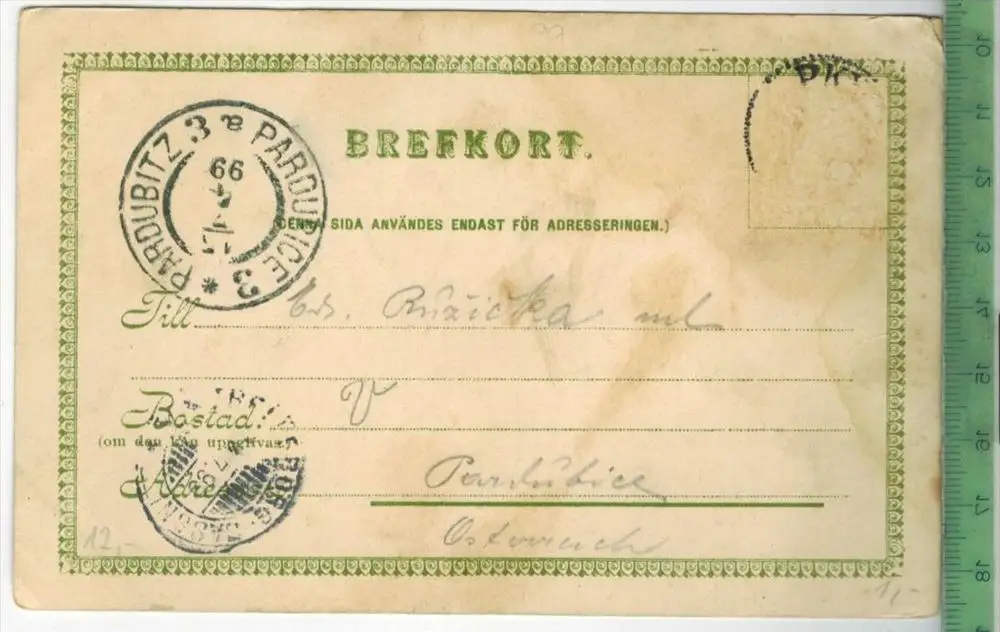 BREFKORT.
(DENNA SIDA ANVÄNDES ENDAST FÖR ADRESSERINGEN.)
PARDUBITZ 3 a PARDUBICE 3 *
99
Till Růžička ml
V
Bostad:
(om den kan uppgifvas.)
Pardubice
Österreich
12,-
1,-
10
11
12
13
14
15
16
17
18